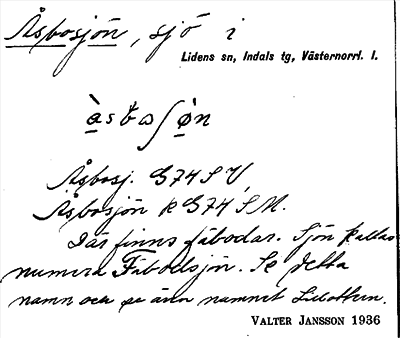 Åsbosjön, sjö i
Lidens sn, Indals tg, Västernorrl. l.
Åsbosj. G74SV,
Åsbosjön k G74 SM.
Där finns fäbodar. Sjön kallas
numera Fäbodsjön. Se detta
namn och se även namnet
VALTER JANSSON 1936